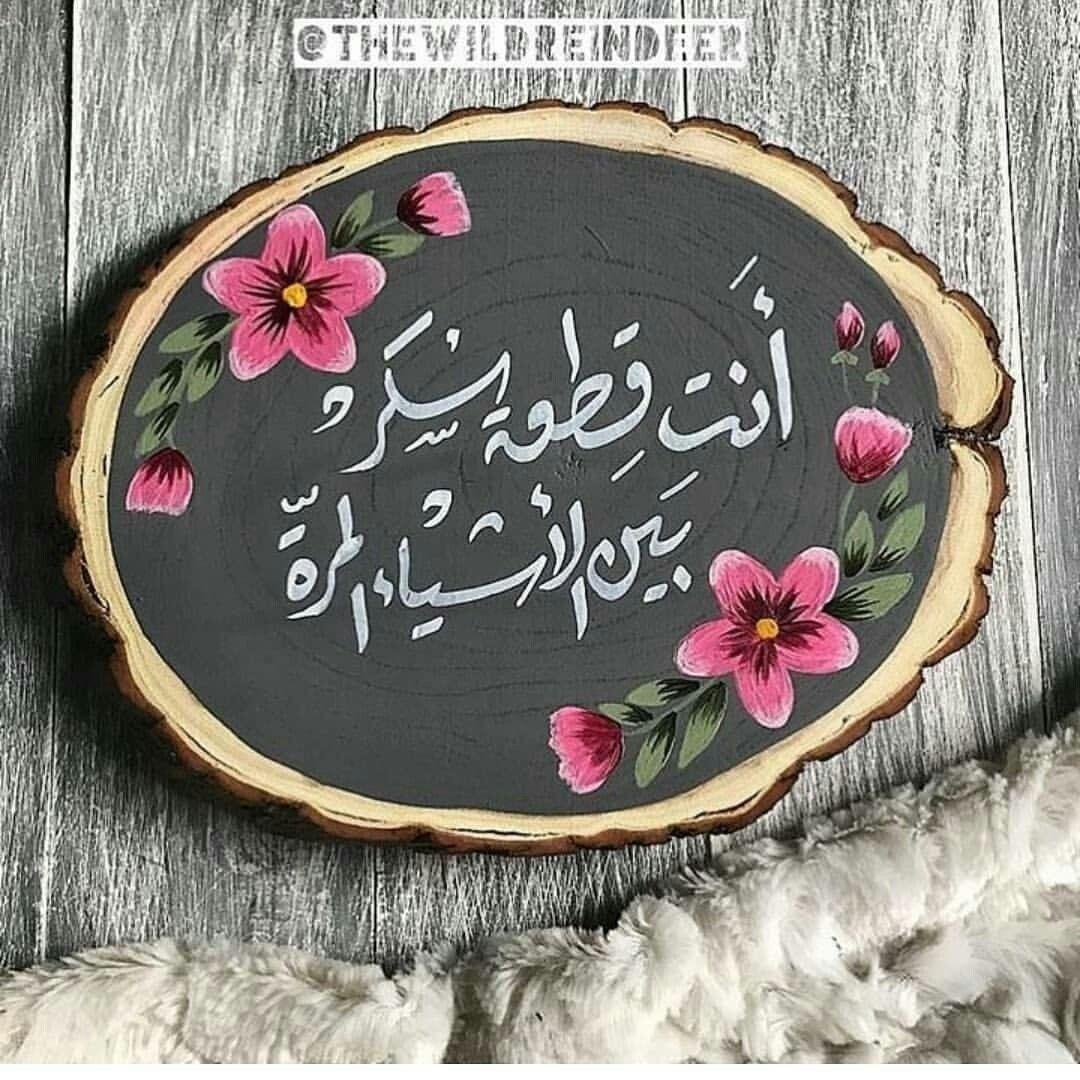 @THEWILDREINDEER
أنتِ قِطعة سُكَّر
بَين الأشياء المرّة